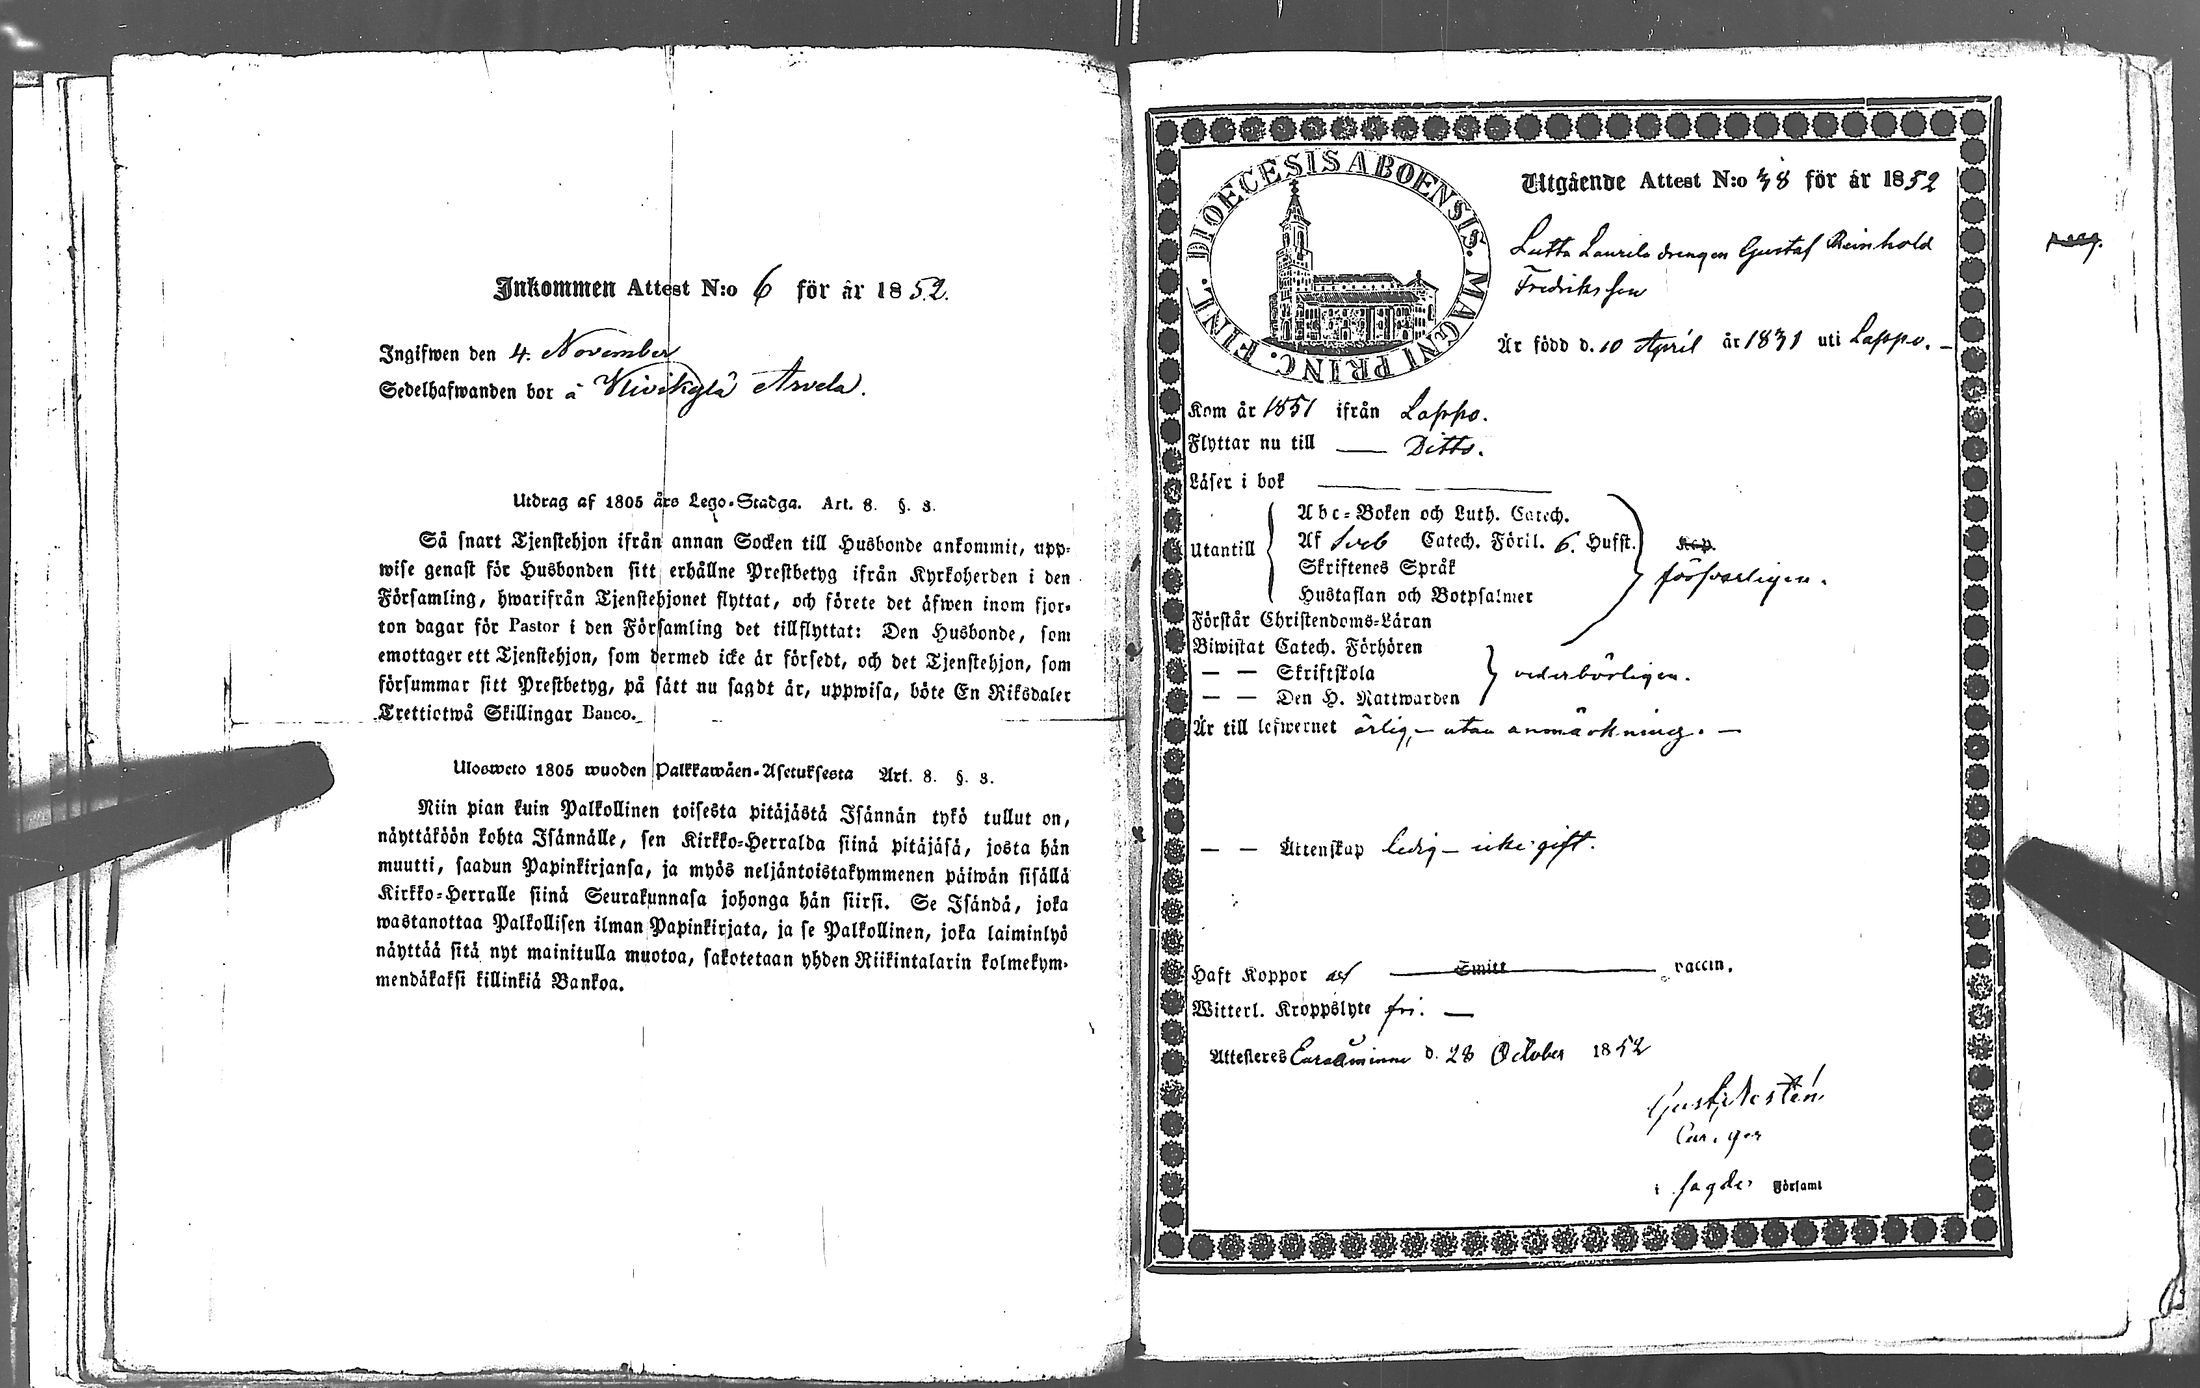 Inkommen Attest N:o 6 för år 1852.
Ingifwen den 4. November
Sedelhafwanden bor å Arvela.
Utdrag af 1805 års Lego-Stadga. Art. 8. §. 3.
Så snart Tjenstehjon ifrån annan Socken till Husbonde ankommit, upp-
wise genast för Husbonden sitt erhållne Prestbetyg ifrån Kyrkoherden i den
Församling, hwarifrån Tjenstehjonet flyttat, och förete det äfwen inom fjor-
ton dagar för Pastor i den Församling det tillflyttat: Den Husbonde, som
emottager ett Tjenstehjon, som dermed icke är försedt, och det Tjenstehjon, som
försummar sitt Prestbetyg, på sätt nu sagdt är, uppwisa, böte En Riksdaler
Trettiotwå Skillingar Banco.
Ulosweto 1805 wuoden Palkkawäen-Asetuksesta Art. 8. §. 3.
Niin pian kuin Palkollinen toisesta pitäjästä Isännän tykö tullut on,
näyttäköön kohta Isännälle, sen Kirkko-Herralda siinä pitäjäsä, josta hän
muutti, saadun Papinkirjansa, ja myös neljäntoistakymmenen päiwän sisällä
Kirkko-Herralle siinä Seurakunnasa johonga hän siirsi. Se Isändä, joka
wastanottaa Palkollisen ilman Papinkirjata, ja se Palkollinen, joka laiminlyö
näyttää sitä nyt mainitulla muotoa, sakotetaan yhden Riikintalarin kolmekym-
mendäkaksi killinkiä Bankoa.
DIOECESIS ABOENSIS. MAGNI PRINC. FINL.
Utgående Attest N:o 38 för år 1852
Laurila drengen Gustaf Reinhold
Fredriksson
Är född d. 10 April år 1831 uti Lappo.
Kom år 1851 ifrån Lappo.
Flyttar nu till — Ditto.
Läser i bok
Utantill
Abc-Boken och Luth. Catech.
Af Sveb Catech. Föril. 6. Husst.
Skriftenes Språk
Hustaflan och Botpsalmer
försvarligen.
Förstår Christendoms-Läran
Biwistat Catech. Förhören
— — Skriftskola
— — Den H. Nattwarden
vederbörligen.
Är till lefwernet ärlig, — utan anmärkning. —
— — Äktenskap ledig — icke gift.
Haft Koppor af Smitt vaccin.
Witterl. Kroppslyte fri. —
Attesteras Euraåminne d. 28 October 1852
i sagde Församl